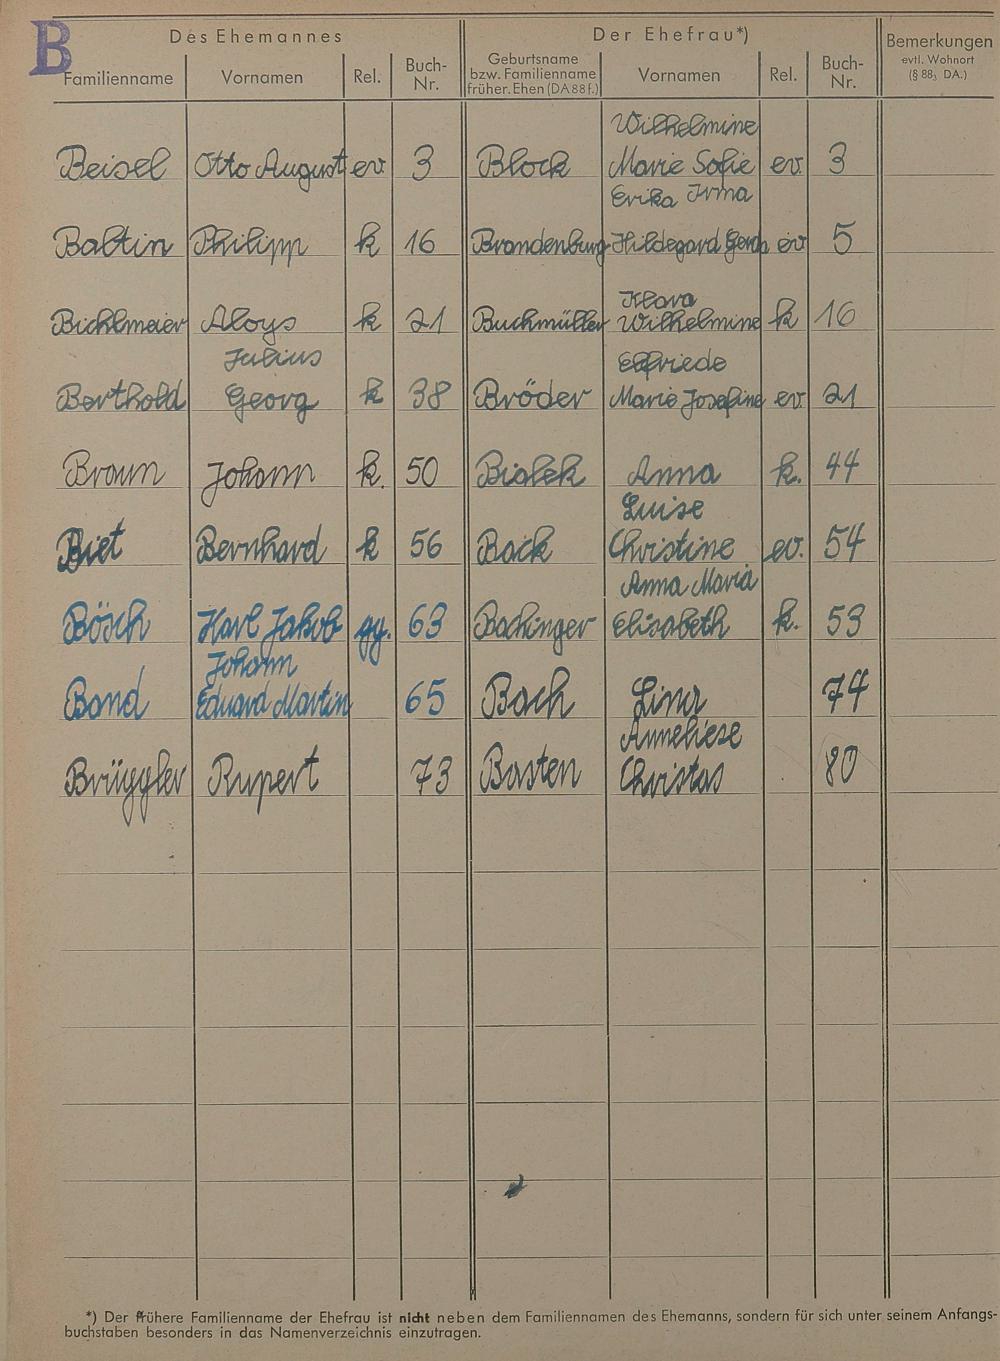 B
Des Ehemannes
Der Ehefrau*)
Bemerkungen
evtl. Wohnort
(§ 88₃ DA.)
Familienname Vornamen Rel. Buch-Nr. Geburtsname bzw. Familienname früher. Ehen (DA 88 f.) Vornamen Rel. Buch-Nr.
Wilhelmine
Beisel Otto August ev 3 Block Marie Sofie ev. 3
Erika Irma
Baltin Philipp k 16 Brandenburg Hildegard Gerda ev 5
Klara
Bichlmaier Aloys k 21 Buchmüller Wilhelmine k 16
Julius Elfriede
Berthold Georg k 38 Bröder Marie Josefine ev. 21
Braun Johann k. 50 Bialek Anna k. 44
Luise
Biet Bernhard k 56 Back Christine ev. 54
Anna Maria
Bösch Karl Jakob gg. 63 Bachinger Elisabeth k. 53
Johann
Band Eduard Martin 65 Bach Lina 74
Anneliese
Brüggler Rupert 73 Basten Christas 80
*) Der frühere Familienname der Ehefrau ist nicht neben dem Familiennamen des Ehemanns, sondern für sich unter seinem Anfangs-
buchstaben besonders in das Namenverzeichnis einzutragen.